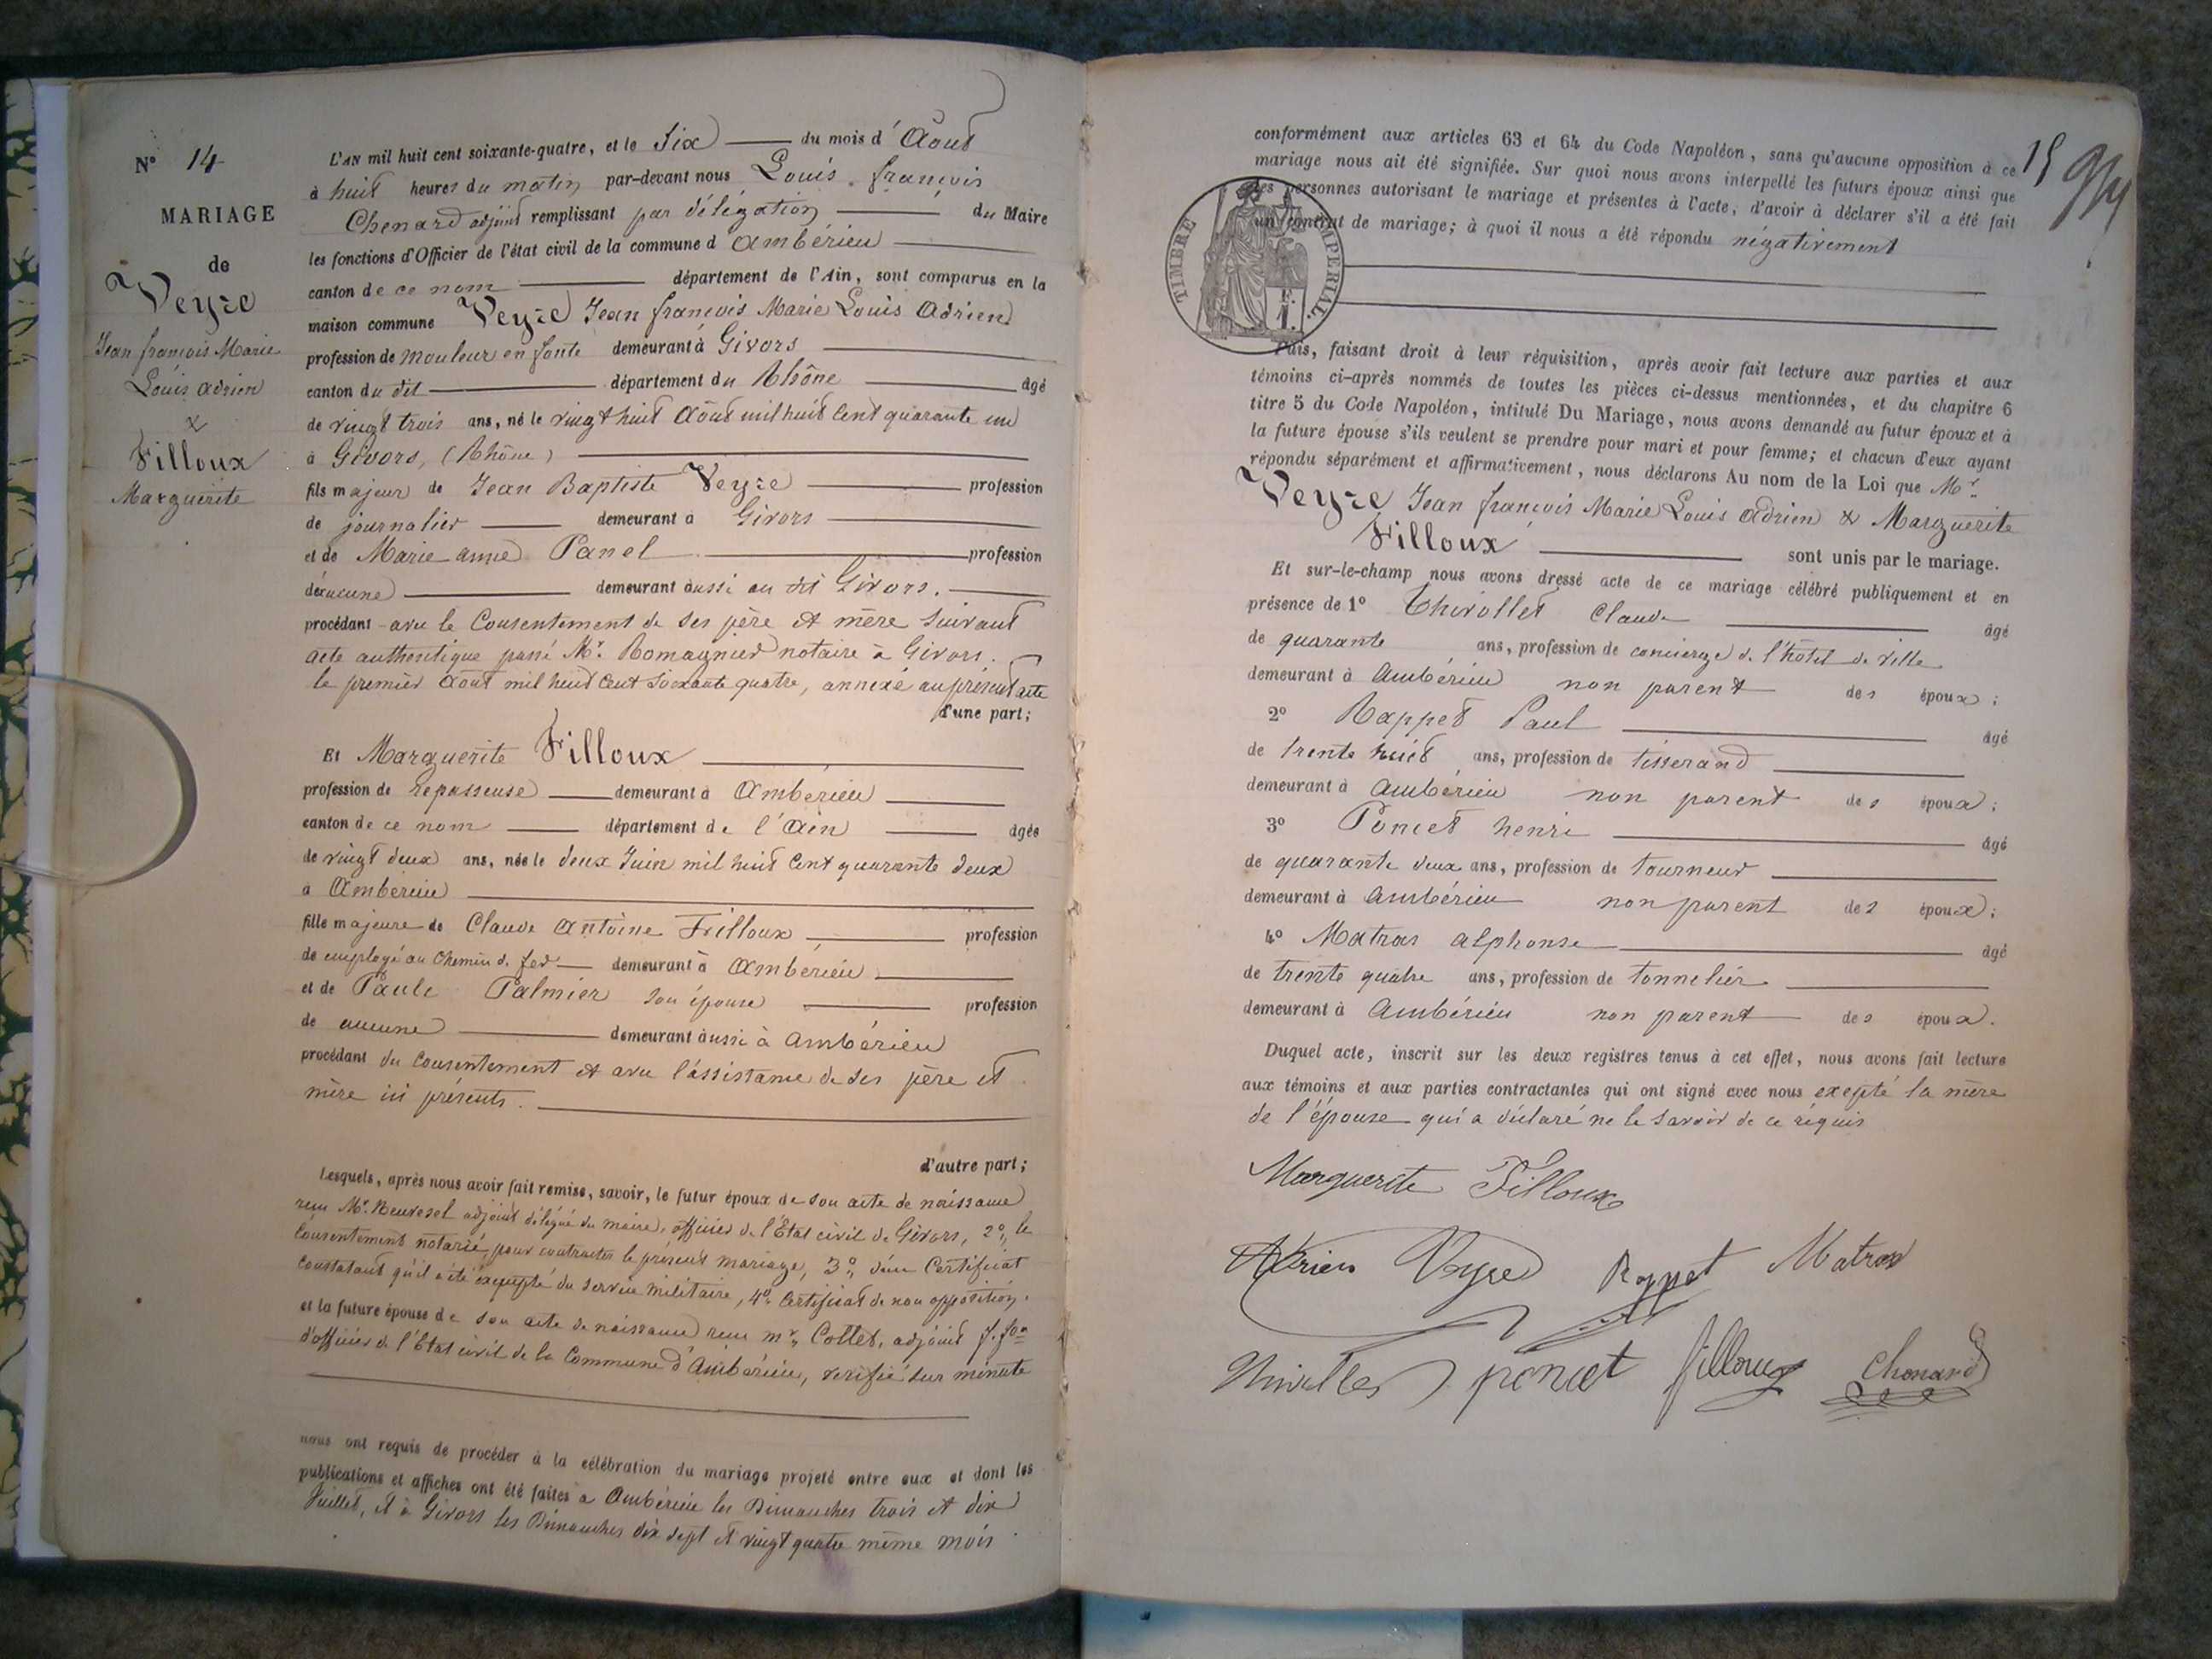 N° 14
MARIAGE
de
Veyre
Jean françois Marie
Louis adrien
&
Filloux
Marguerite
L'AN mil huit cent soixante-quatre, et le Six du mois d'Aout
à huit heures du matin par-devant nous Louis françois
Chenard adjoint remplissant par délégation du Maire
les fonctions d'Officier de l'état civil de la commune d ambérieu
canton de ce nom département de l'Ain, sont comparus en la
maison commune Veyre Jean françois Marie Louis adrien
profession de mouleur en fonte demeurant à Givors
canton du dit département du Rhône âgé
de vingt trois ans, né le vingt huit Août mil huit cent quarante un
à Givors, (Rhône)
fils majeur de Jean Baptiste Veyre profession
de journalier demeurant à Givors
et de Marie anne Panel profession
d'aucune demeurant aussi au dit Givors.
procédant avec le Consentement de ses père et mère suivant
acte authentique passé Mr. Romagnier notaire à Givors.
le premier aout mil huit cent soixante quatre, annexé au présent acte
d'une part;
Et Marguerite Filloux
profession de repasseuse demeurant à ambérieu
canton de ce nom département de l'ain âgée
de vingt deux ans, née le deux Juin mil huit cent quarante deux
à ambérieu
fille majeure de Claude antoine Filloux profession
de employé au chemin de fer demeurant à ambérieu
et de Paule Palmier son épouse profession
de aucune demeurant aussi à ambérieu
procédant du consentement et avec l'assistance de ses père et
mère ici présents.
d'autre part;
Lesquels, après nous avoir fait remise, savoir, le futur époux de son acte de naissance
reçu Mr. adjoint délégué du maire, officier de l'État civil de Givors, 2° le
consentement notarié, pour contracter le présent mariage, 3° d'un Certificat
constatant qu'il a été exempté du service militaire, 4° Certificat de non opposition.
et la future épouse de son acte de naissance reçu mr. Collet, adjoint f. fon
d'officier de l'État civil de la Commune d'ambérieu, vérifié sur minute
nous ont requis de procéder à la célébration du mariage projeté entre eux et dont les
publications et affiches ont été faites à ambérieu les Dimanches trois et dix
Juillet, et à Givors les Dimanches dix sept et vingt quatre même mois.
15
conformément aux articles 63 et 64 du Code Napoléon, sans qu'aucune opposition à ce
mariage nous ait été signifiée. Sur quoi nous avons interpellé les futurs époux ainsi que
les personnes autorisant le mariage et présentes à l'acte, d'avoir à déclarer s'il a été fait
un contrat de mariage; à quoi il nous a été répondu négativement
TIMBRE IMPERIAL.
1 F.
Puis, faisant droit à leur réquisition, après avoir fait lecture aux parties et aux
témoins ci-après nommés de toutes les pièces ci-dessus mentionnées, et du chapitre 6
titre 5 du Code Napoléon, intitulé Du Mariage, nous avons demandé au futur époux et à
la future épouse s'ils veulent se prendre pour mari et pour femme; et chacun d'eux ayant
répondu séparément et affirmativement, nous déclarons Au nom de la Loi que Mr.
Veyre Jean françois Marie Louis adrien & Marguerite
Filloux sont unis par le mariage.
Et sur-le-champ nous avons dressé acte de ce mariage célébré publiquement et en
présence de 1° Thivollet Claude âgé
de quarante ans, profession de concierge de l'hôtel de ville
demeurant à ambérieu non parent des époux;
2° Rappet Paul âgé
de trente huit ans, profession de tisserand
demeurant à ambérieu non parent des époux;
3° Poncet henri âgé
de quarante deux ans, profession de tourneur
demeurant à ambérieu non parent des époux;
4° Matras alphonse âgé
de trente quatre ans, profession de tonnelier
demeurant à ambérieu non parent des époux.
Duquel acte, inscrit sur les deux registres tenus à cet effet, nous avons fait lecture
aux témoins et aux parties contractantes qui ont signé avec nous excepté la mère
de l'épouse qui a déclaré ne le savoir de ce réquis
Marguerite Filloux
Adrien Veyre Rappet Matras
poncet filloux Chenard